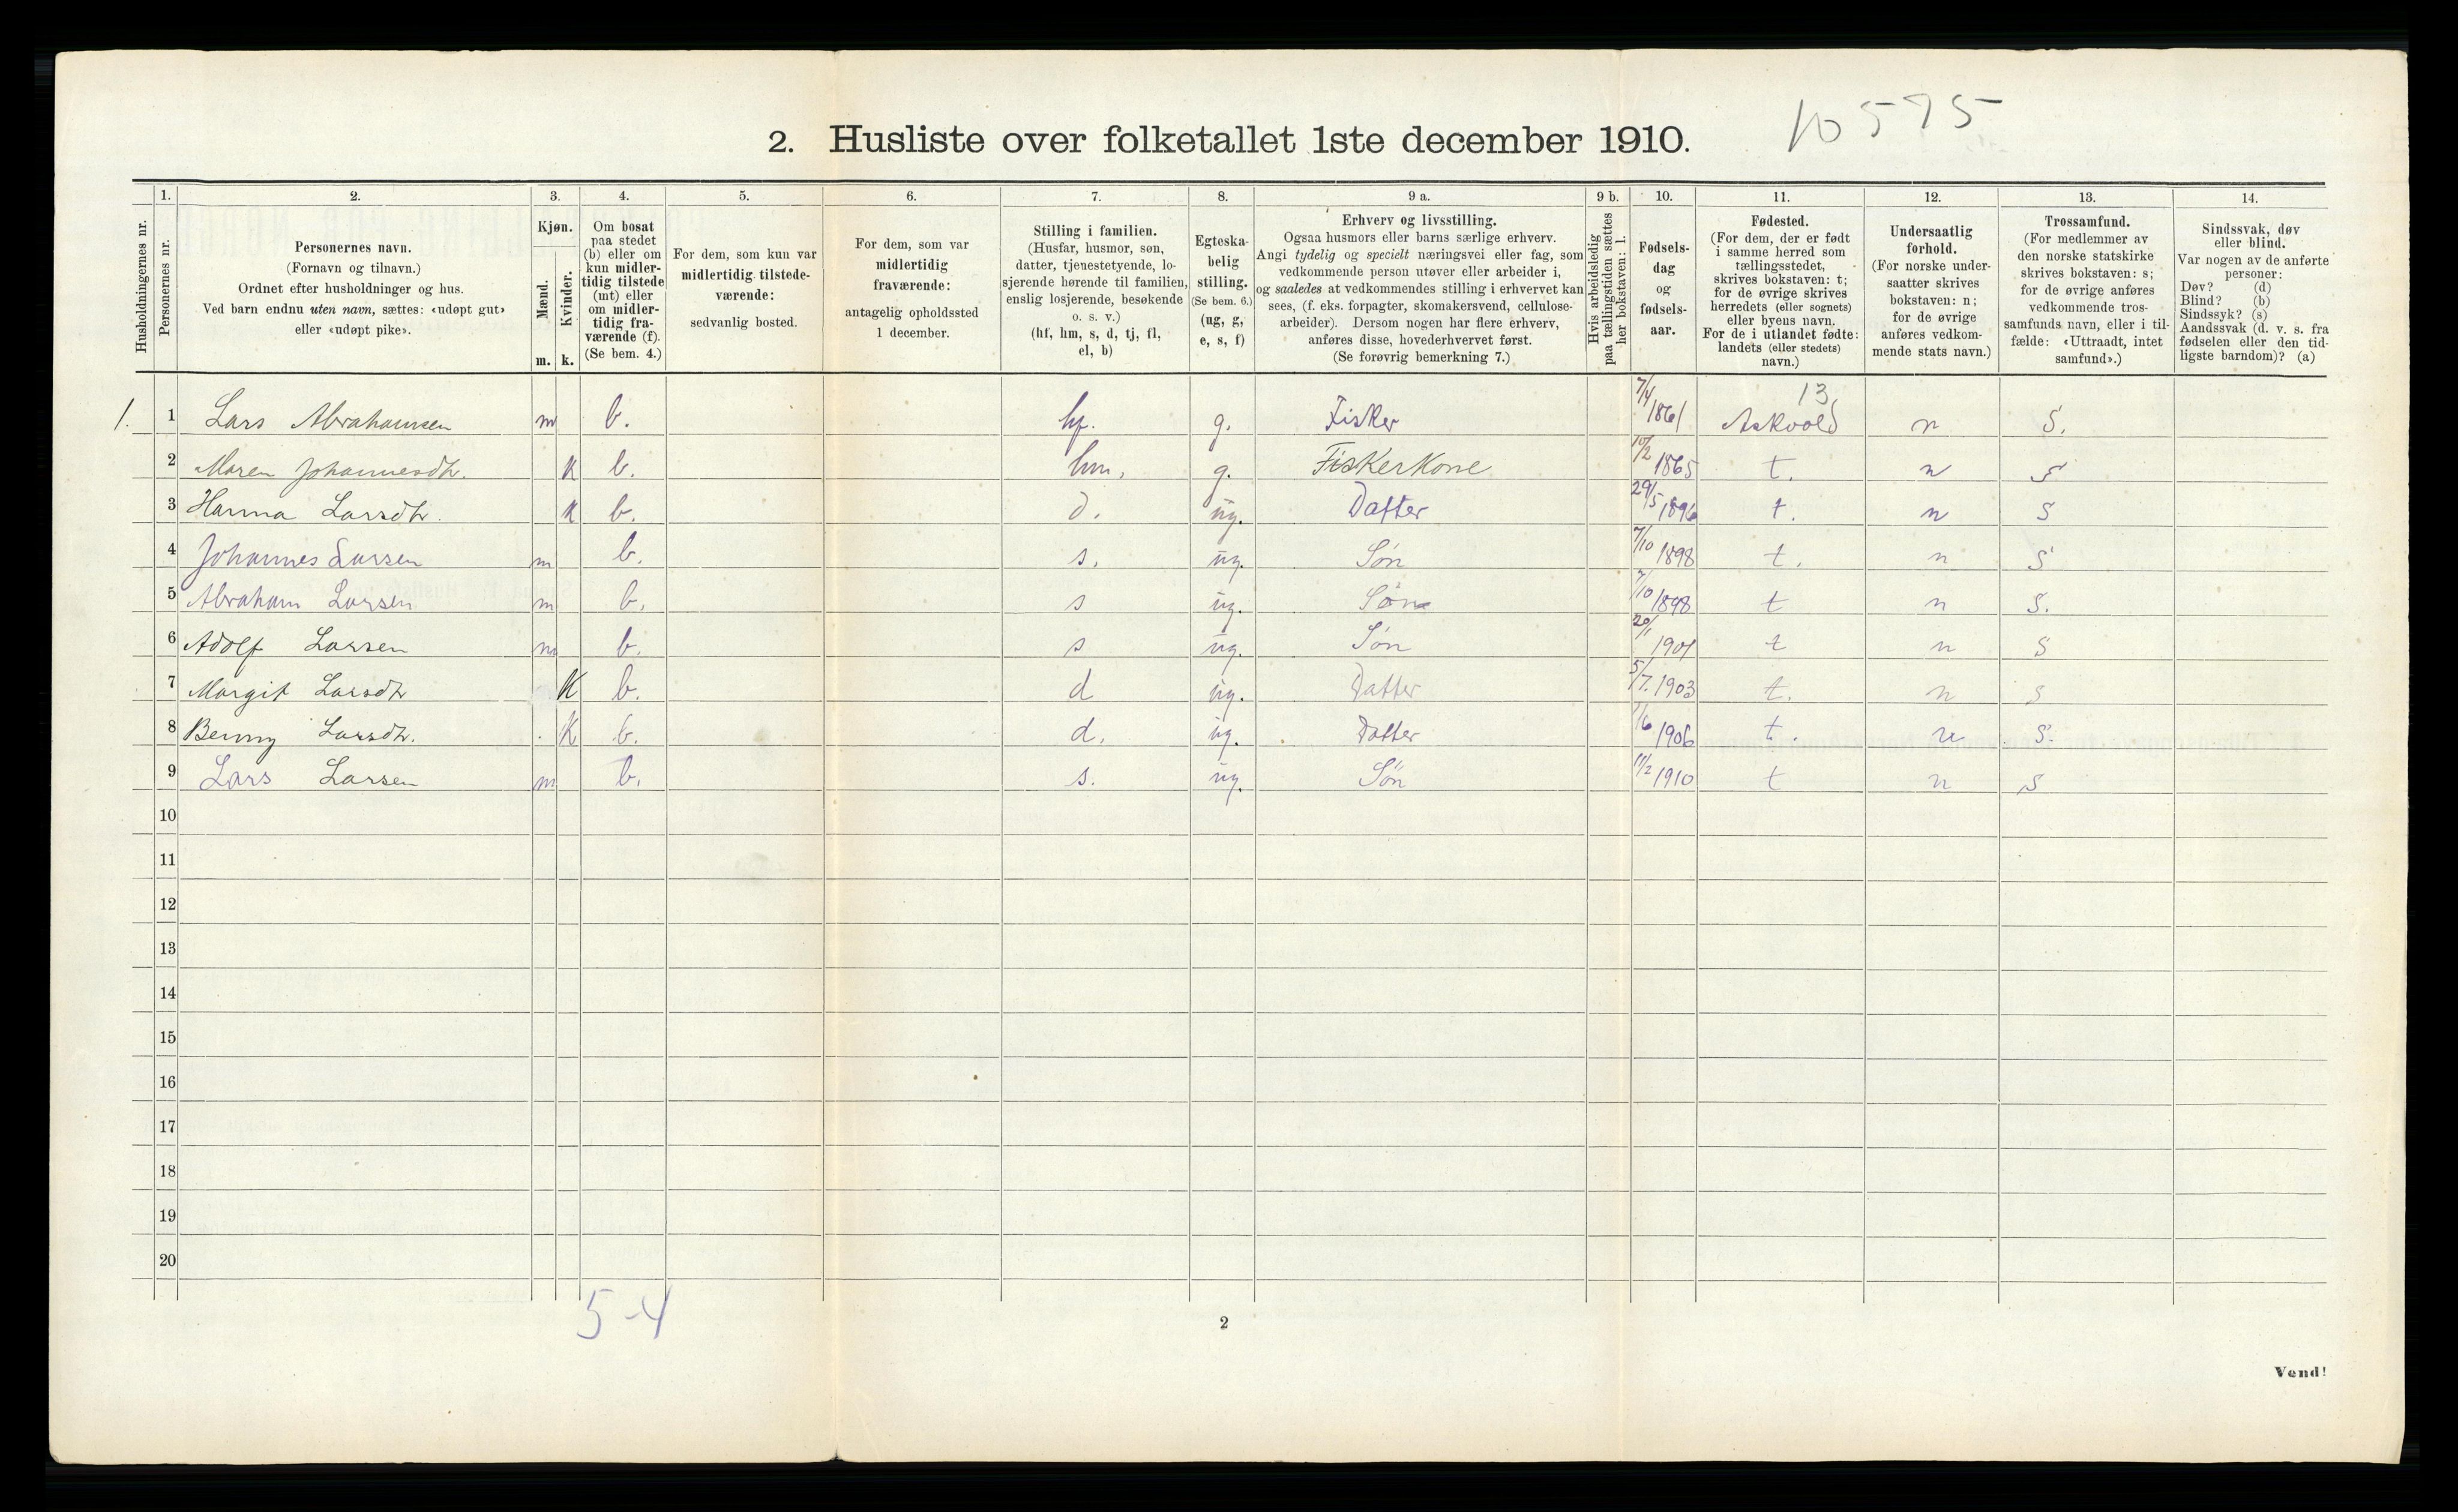 10575
2. Husliste over folketallet 1ste december 1910.
Husholdningernes nr.
1.
Personernes nr.
2.
Personernes navn.
(Fornavn og tilnavn.)
Ordnet efter husholdninger og hus.
Ved barn endnu uten navn, sættes: «udøpt gut»
eller «udøpt pike».
3.
Kjøn.
Mænd.
m.
Kvinder.
k.
4.
Om bosat
paa stedet
(b) eller om
kun midler-
tidig tilstede
(mt) eller
om midler-
tidig fra-
værende (f).
(Se bem. 4.)
5.
For dem, som kun var
midlertidig tilstede-
værende:
sedvanlig bosted.
6.
For dem, som var
midlertidig
fraværende:
antagelig opholdssted
1 december.
7.
Stilling i familien.
(Husfar, husmor, søn,
datter, tjenestetyende, lo-
sjerende hørende til familien,
enslig losjerende, besøkende
o. s. v.)
(hf, hm, s, d, tj, fl,
el, b)
8.
Egteska-
belig
stilling.
(Se bem. 6.)
(ug, g,
e, s, f)
9 a.
Erhverv og livsstilling.
Ogsaa husmors eller barns særlige erhverv.
Angi tydelig og specielt næringsvei eller fag, som
vedkommende person utøver eller arbeider i,
og saaledes at vedkommendes stilling i erhvervet kan
sees, (f. eks. forpagter, skomakersvend, cellulose-
arbeider). Dersom nogen har flere erhverv,
anføres disse, hovederhvervet først.
(Se forøvrig bemerkning 7.)
9 b.
Hvis arbeidsledig
paa tællingstiden sættes
her bokstaven: l.
10.
Fødsels-
dag
og
fødsels-
aar.
11.
Fødested.
(For dem, der er født
i samme herred som
tællingsstedet,
skrives bokstaven: t;
for de øvrige skrives
herredets (eller sognets)
eller byens navn.
For de i utlandet fødte:
landets (eller stedets)
navn.)
12.
Undersaatlig
forhold.
(For norske under-
saatter skrives
bokstaven: n;
for de øvrige
anføres vedkom-
mende stats navn.)
13.
Trossamfund.
(For medlemmer av
den norske statskirke
skrives bokstaven: s;
for de øvrige anføres
vedkommende tros-
samfunds navn, eller i til-
fælde: «Uttraadt, intet
samfund».)
14.
Sindssvak, døv
eller blind.
Var nogen av de anførte
personer:
Døv? (d)
Blind? (b)
Sindssyk? (s)
Aandssvak (d. v. s. fra
fødselen eller den tid-
ligste barndom)? (a)
13,
1. 1 Lars Abrahamsen m b. hf. g. Fisker 7/4 1861 Askvold n S.
2 Maren Johannesdtr. K b. hm, g. FiskerKone 10/2 1865 t. n S
3 Hanna Larsdtr. K b. d. ug. Datter 29/5 1896 t. n S
4 Johannes Larsen m b. s. ug. Søn 7/10 1898 t. n S
5 Abraham Larsen m b. s ug. Søn 7/10 1898 t n S.
6 Adolf Larsen m b. s ug. Søn 20/1 1901 t n S
7 Margit Larsdtr K b. d ug. Datter 5/7. 1903 t. n S
8 Benny Larsdtr. K b. d. ug. Datter 1/6 1906 t. n S.
9 Lars Larsen m b. s. ug. Søn 11/2 1910 t n S
10
11
12
13
14
15
16
17
18
19
20
5-4
2
Vend!